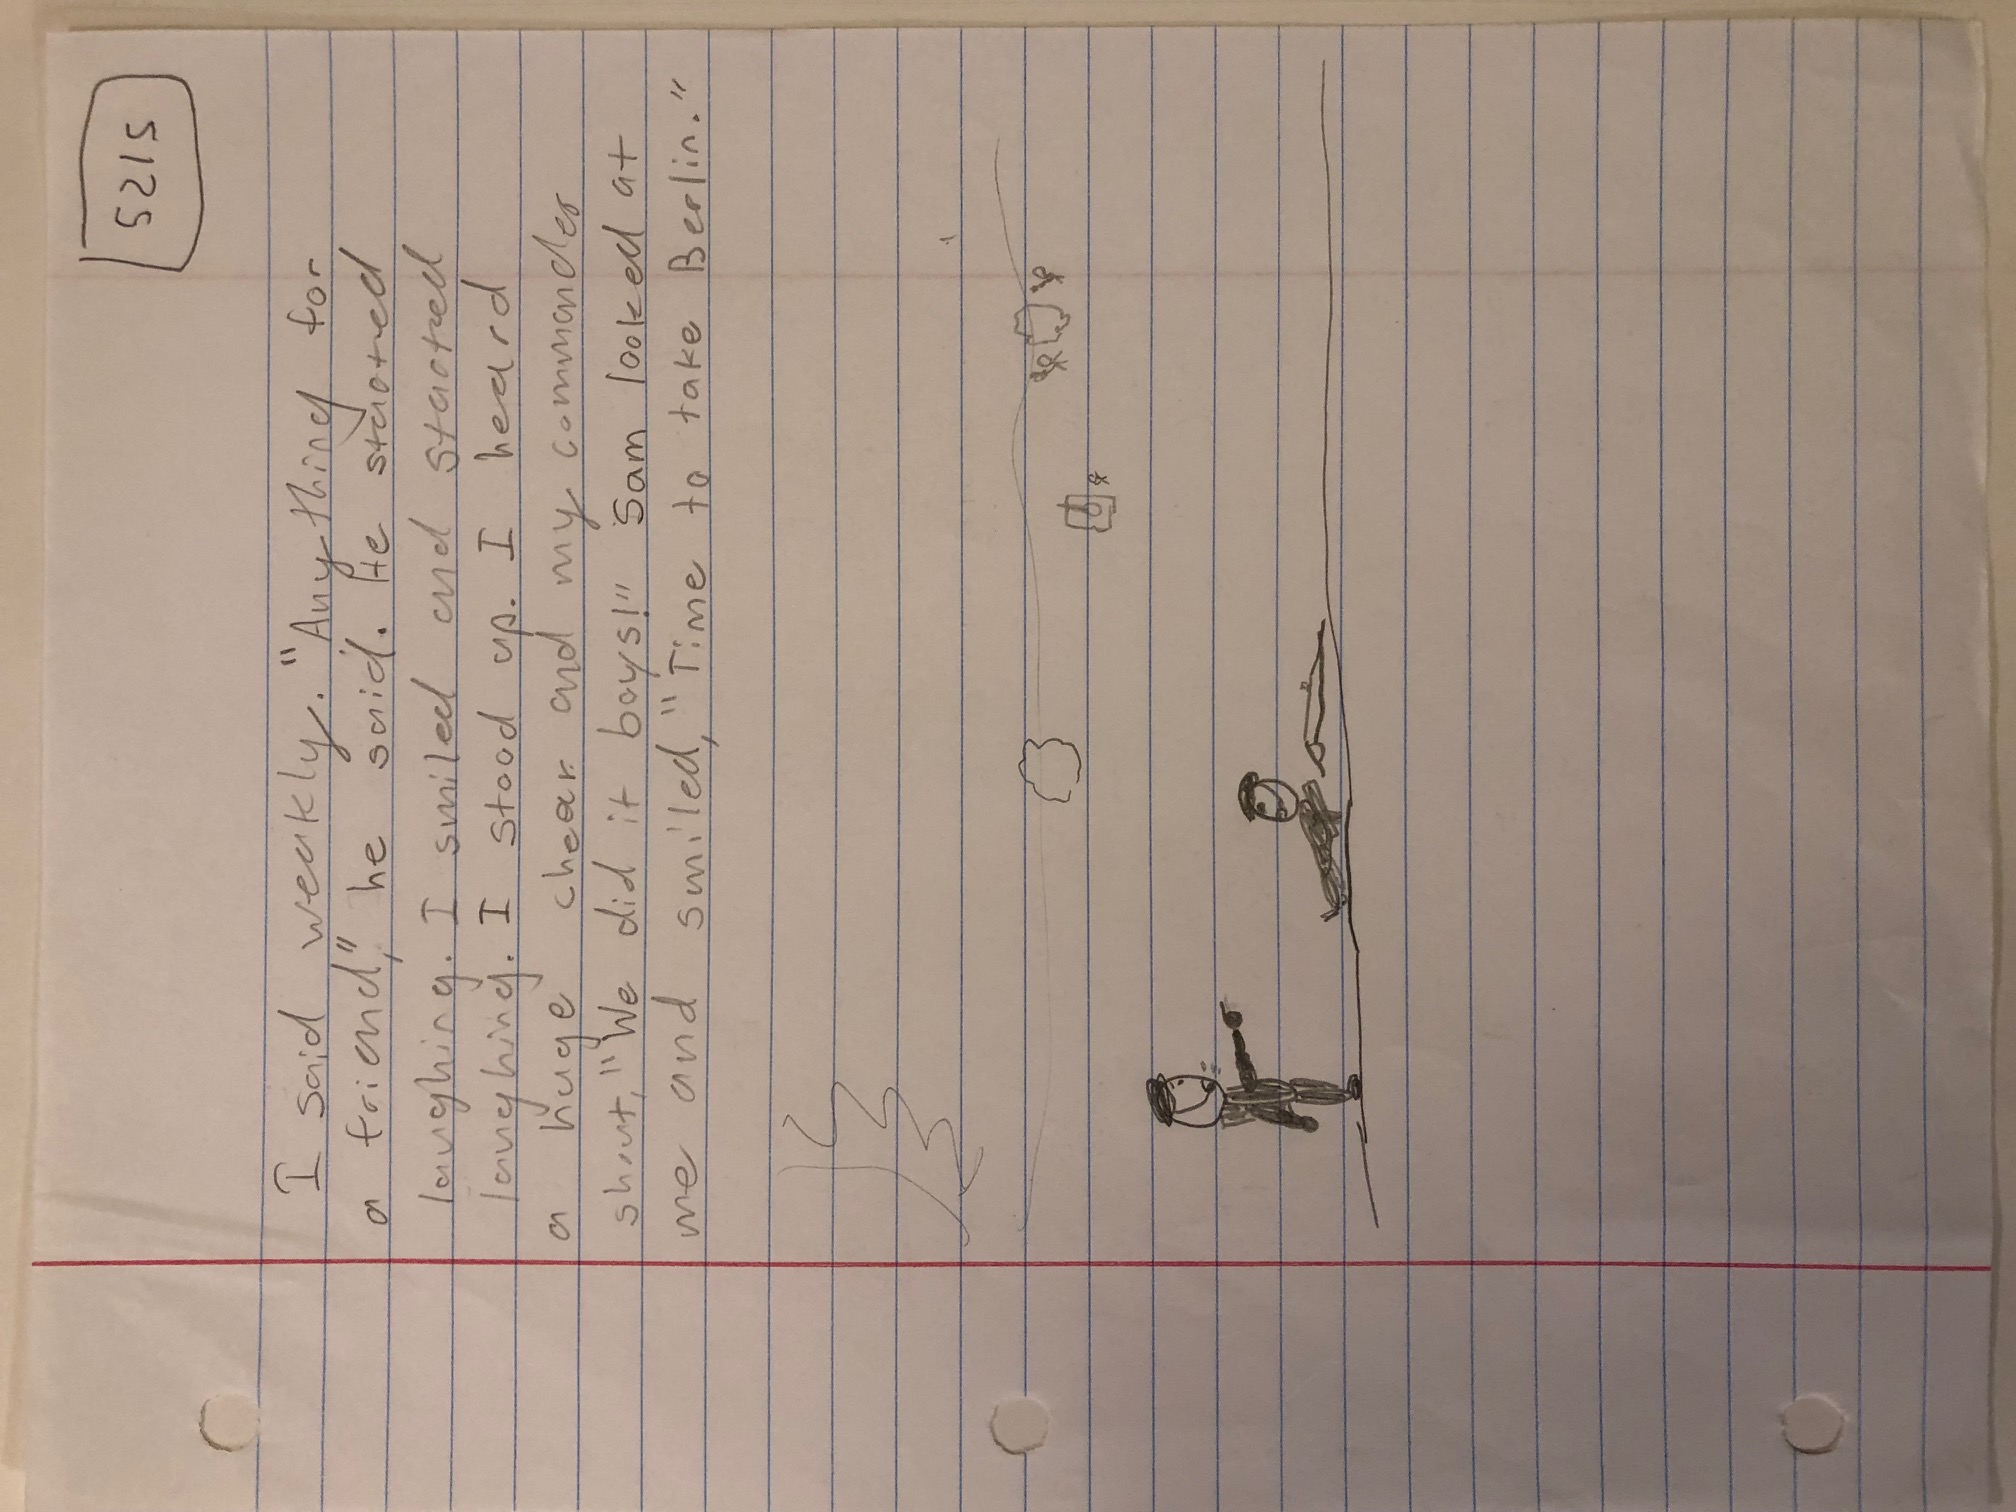 5215
I said weakly. "Anything for
a friend," he said. He started
laughing. I smiled and started
laughing. I stood up. I heard
a huge cheer and my commander
shout, "We did it boys!" Sam looked at
me and smiled, "Time to take Berlin."